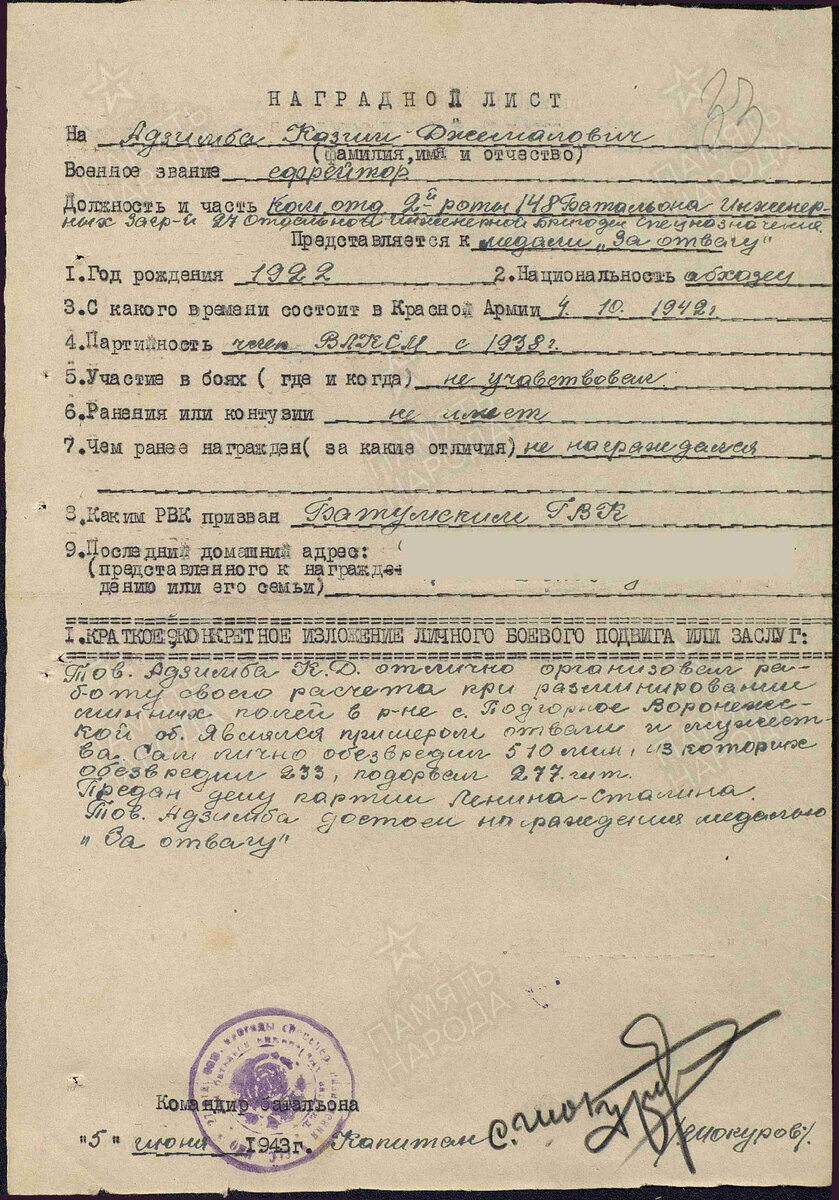 33
НАГРАДНОЙ ЛИСТ
На Адзимба Казим Джемалович
(фамилия, имя и отчество)
Военное звание ефрейтор
Должность и часть ком отд 2й роты 148 Батальона Инженер-
ных Загр-й 27 Отдельной Инженерной Бригады Спецназначения
Представляется к медали „За отвагу"
1.Год рождения 1922 2.Национальность абхазец
3.С какого времени состоит в Красной Армии 4. 10. 1942г
4.Партийность член ВЛКСМ с 1938г.
5.Участие в боях ( где и когда) не учавствовал
6.Ранения или контузии не имеет
7.Чем ранее награжден( за какие отличия) не награждался
8.Каким РВК призван Батумским ГВК
9.Последний домашний адрес:
(представленного к награжде-
дению или его семьи)
I.КРАТКОЕ,КОНКРЕТНОЕ ИЗЛОЖЕНИЕ ЛИЧНОГО БОЕВОГО ПОДВИГА ИЛИ ЗАСЛУГ:
Тов. Адзимба К.Д. отлично организовал ра-
боту своего расчета при разминировании
минных полей в р-не с. Подгорное Воронежс-
кой об. Являлся примером отваги и мужест-
ва. Сам лично обезвредил 510 мин, из которых
обезвредил 233, подорвал 277 шт.
Предан делу партии Ленина-Сталина.
Тов. Адзимба достоен награждения медалью
„За отвагу"
ПАМЯТЬ
НАРОДА
Командир батальона
"5" июня 1943г. Капитан